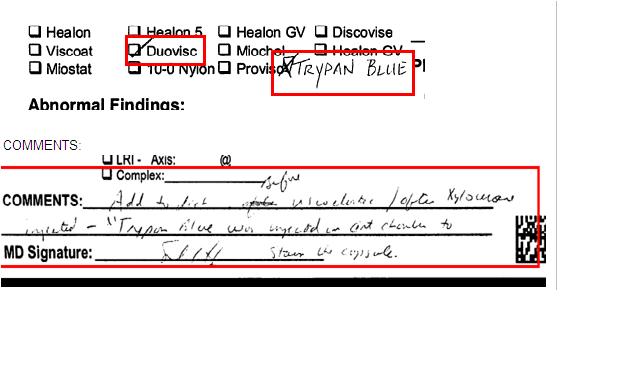 Healon Healon 5 Healon GV Discovise
Viscoat Duovisc Miochol Healon GV
Miostat 10-0 Nylon Provisc TRYPAN BLUE
Abnormal Findings:
COMMENTS:
LRI - Axis: @
Complex:
Before
COMMENTS: Add to dict viscoelastic / after Xylocaine
injected - "Trypan Blue was injected in ant chamber to
MD Signature: Stain the capsule.